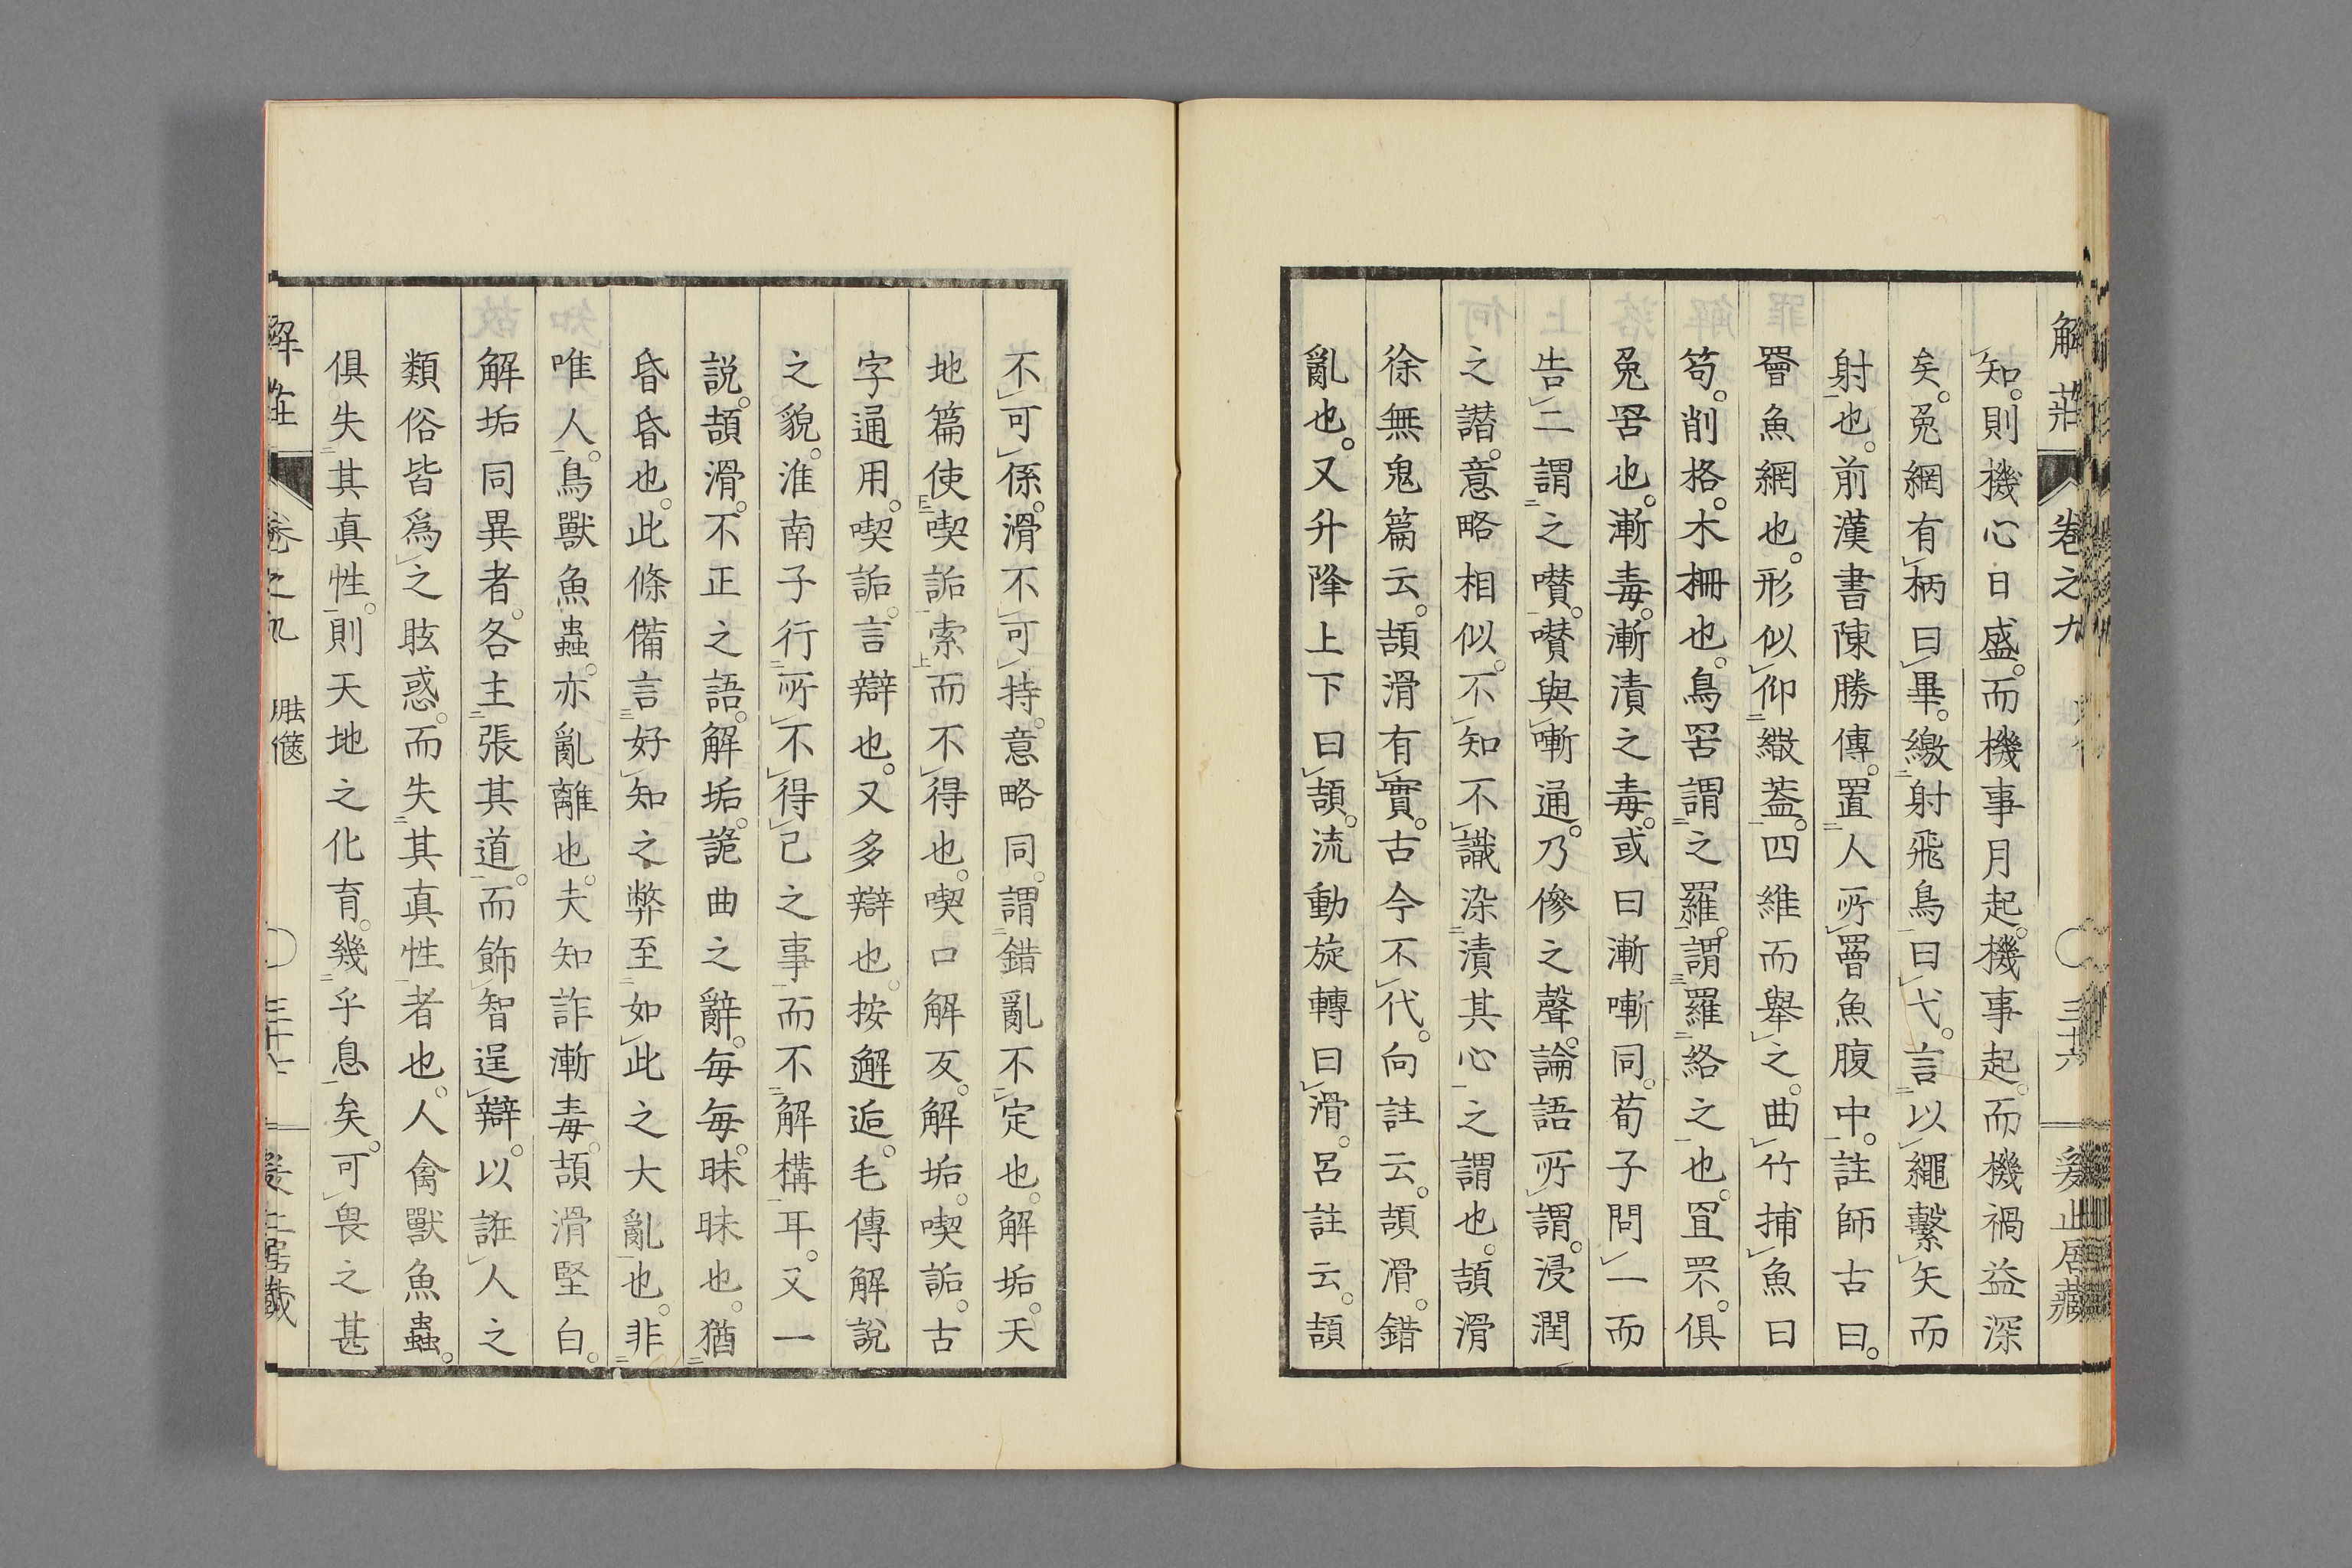 解莊 卷之九 三十六 爰止居藏
知。則機心日盛。而機事月起。機事起。而機禍益深
矣。兔網有柄曰畢。繳射飛鳥曰弋。言以繩繫矢而
射也。前漢書陳勝傳。置人所罾魚腹中。註師古曰。
罾魚網也。形似仰繖蓋。四維而舉之。曲竹捕魚曰
笱。削格。木柵也。鳥罟謂之羅。謂羅絡之也。罝罘。俱
兔罟也。漸毒。漸漬之毒。或曰漸嘶同。荀子問一而
告二謂之囋。囋與嘶通。乃傪之聲。論語所謂。浸潤
之譖。意略相似。不知不識染漬其心之謂也。頡滑
徐無鬼篇云。頡滑有實。古今不代。向註云。頡滑。錯
亂也。又升降上下曰頡。流動旋轉曰滑。呂註云。頡
不可係。滑不可持。意略同。謂錯亂不定也。解垢。天
地篇使喫詬索而不得也。喫口解反。解垢。喫詬。古
字通用。喫詬。言辯也。又多辯也。按邂逅。毛傳解說
之貌。淮南子行所不得已之事而不解構耳。又一
說。頡滑。不正之語。解垢。詭曲之辭。每每。昧昧也。猶
昏昏也。此條備言好知之弊至如此之大亂也。非
唯人。鳥獸魚蟲。亦亂離也。夫知詐漸毒。頡滑堅白。
解垢同異者。各主張其道。而飾智逞辯。以誑人之
類俗皆爲之眩惑。而失其真性者也。人禽獸魚蟲。
俱失其真性。則天地之化育。幾乎息矣。可畏之甚
解莊 卷之九 胠篋 三十七 爰止居藏